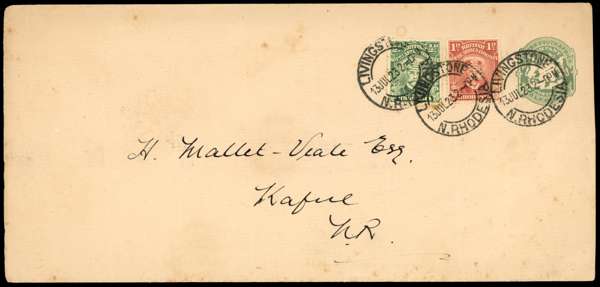 LIVINGSTONE
13 JUL 23
N. RHODESIA
½D
BRITISH
1D
1D
LIVINGSTONE
13 JUL 23
N. RHODESIA
LIVINGSTONE
13 JUL 23
N. RHODESIA
H. Mallet-Veale Esq.
Kafue
N.R.